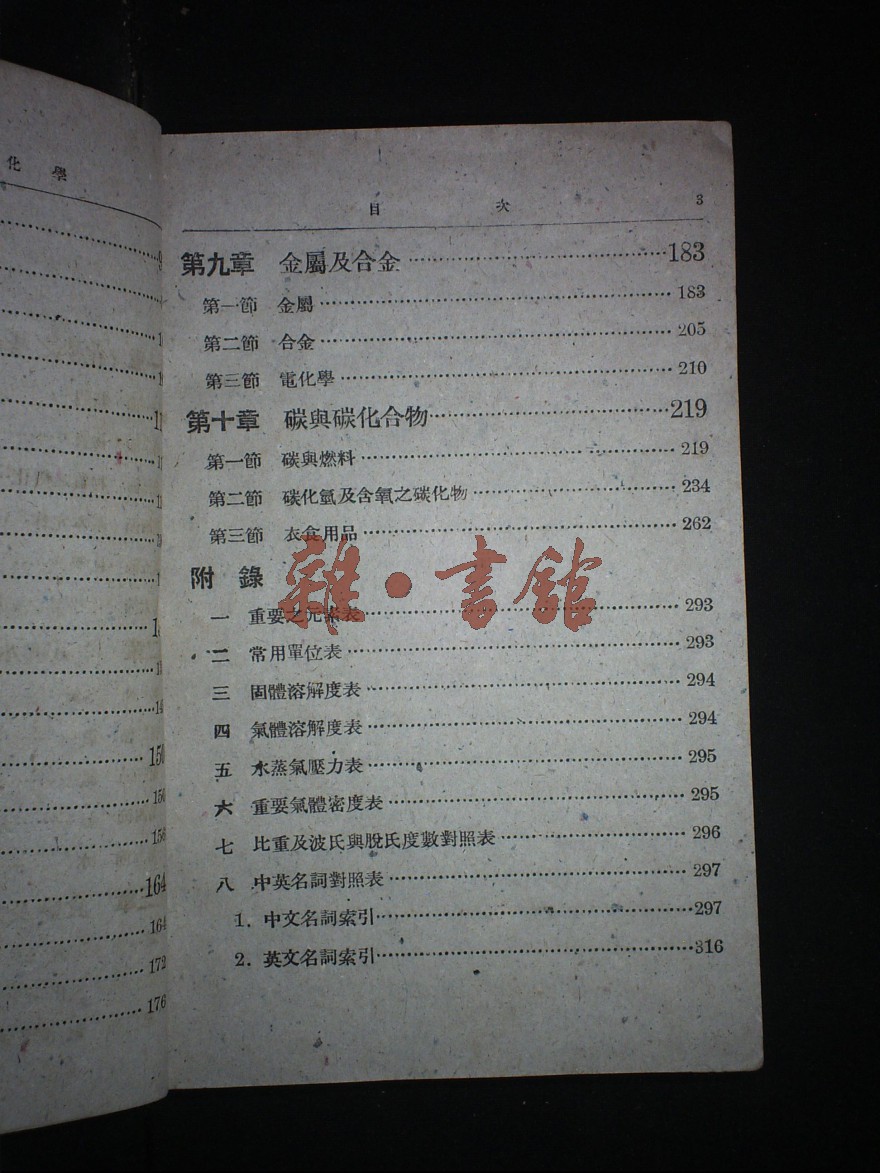 化學
150
150
156
164
164
172
176
目次 3
第九章 金屬及合金 183
第一節 金屬 183
第二節 合金 205
第三節 電化學 210
第十章 碳與碳化合物 219
第一節 碳與燃料 219
第二節 碳化氫及含氧之碳化物 234
第三節 衣食用品 262
附錄
雜·書館
一 重要之元素表 293
二 常用單位表 293
三 固體溶解度表 294
四 氣體溶解度表 294
五 水蒸氣壓力表 295
六 重要氣體密度表 295
七 比重及波氏與脫氏度數對照表 296
八 中英名詞對照表 297
1. 中文名詞索引 297
2. 英文名詞索引 316